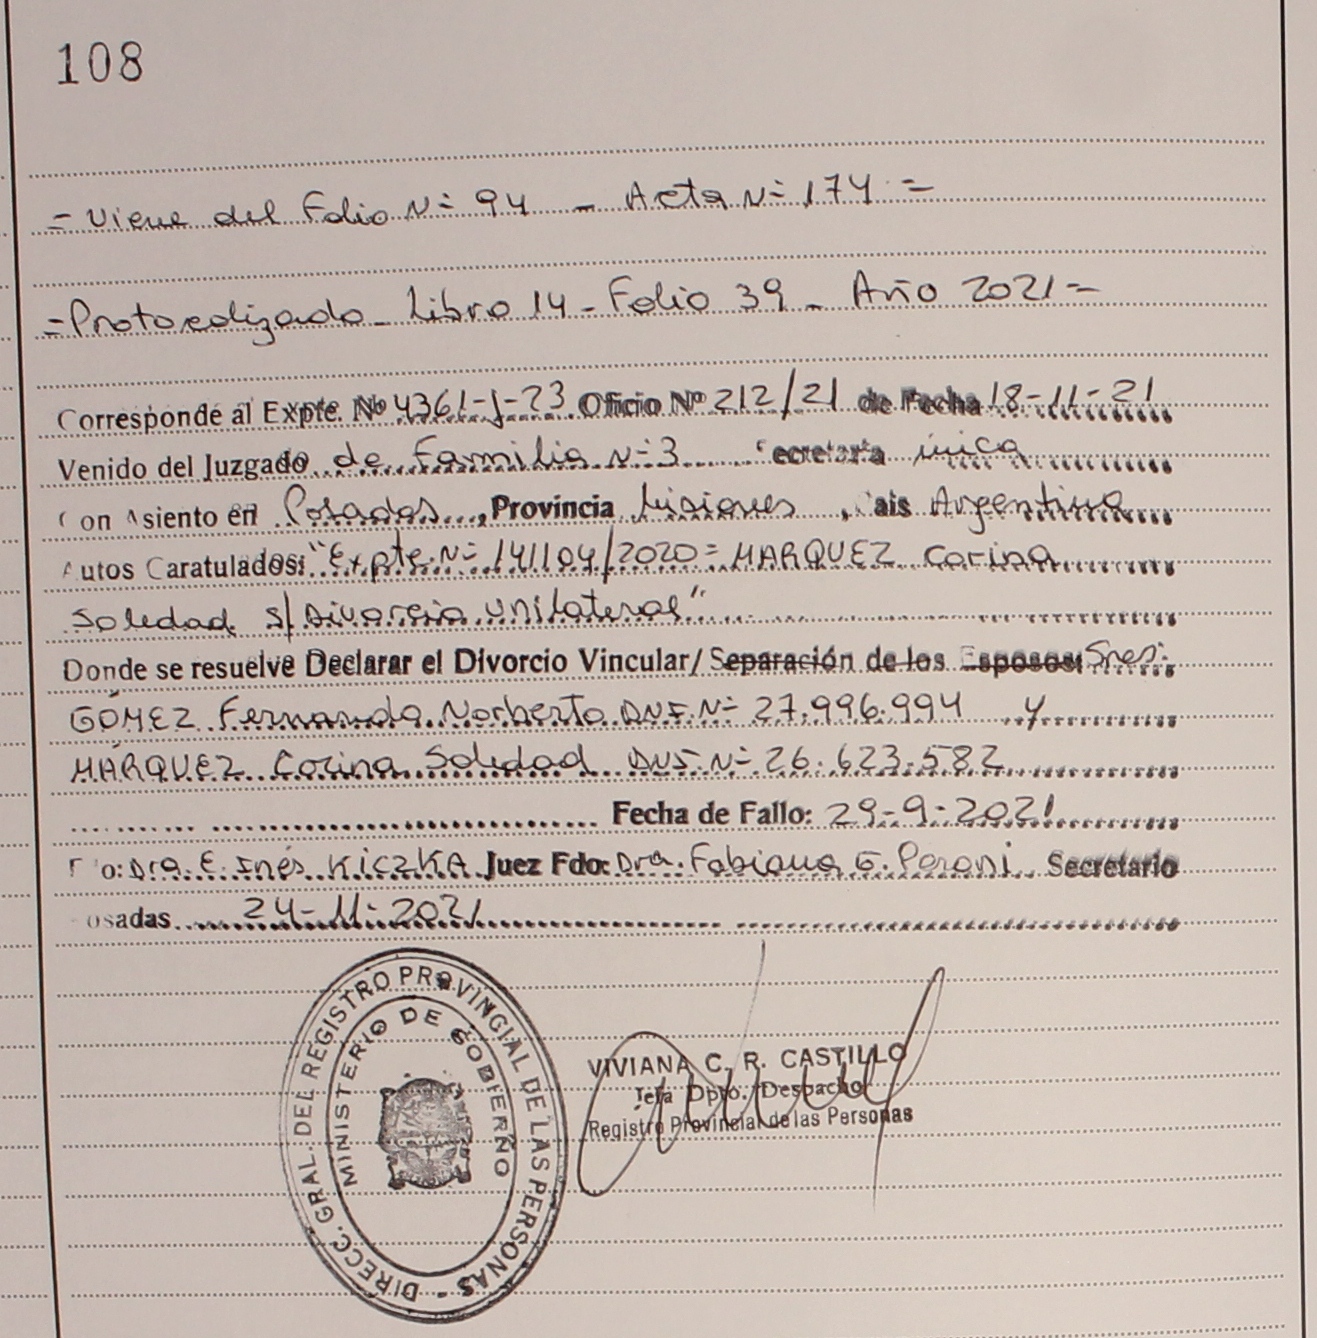 108
= Viene del Folio Nº 94 - Acta Nº 174 =
= Protocolizado - Libro 14 - Folio 39 - Año 2021 =
Corresponde al Expte. Nº 4361-J-23 Oficio Nº 212/21 de Fecha 18-11-21
Venido del Juzgado de Familia Nº 3 ecretaria única
Con Asiento en Posadas, Provincia Misiones, Pais Argentina
Autos Caratulados: "Expte. Nº 141104/2020 = MARQUEZ Corina
Soledad s/ Divorcio Unilateral"
Donde se resuelve Declarar el Divorcio Vincular/ Separación de los Esposos: Sres.
GÓMEZ Fernando Norberto DNI. Nº 27.996.994 y
MÁRQUEZ Corina Soledad DNI. Nº 26.623.582
Fecha de Fallo: 29-9-2021
F o: Dra. E. Inés KICZKA Juez Fdo: Dra. Fabiana G. Perani Secretario
osadas 24-11-2021
DIRECC. GRAL. DEL REGISTRO PROVINCIAL DE LAS PERSONAS -
MINISTERIO DE GOBIERNO
VIVIANA C. R. CASTILLO
Jefa Dpto. Despacho
Registro Provincial de las Personas